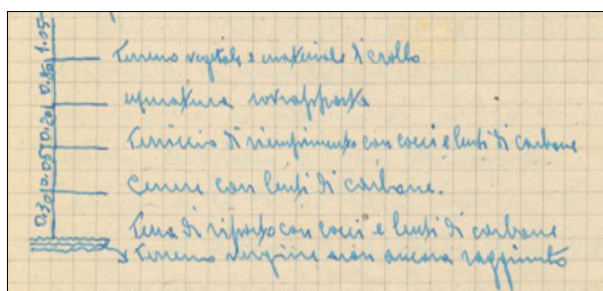 1.05
Terreno vegetale e materiale di crollo
0.80
muratura sovrapposta
0.20
Terriccio di riempimento con cocci e lenti di carbone
0.05
Cenere con lenti di carbone.
0.30
Terra di riporto con cocci e lenti di carbone
Terreno vergine non ancora raggiunto